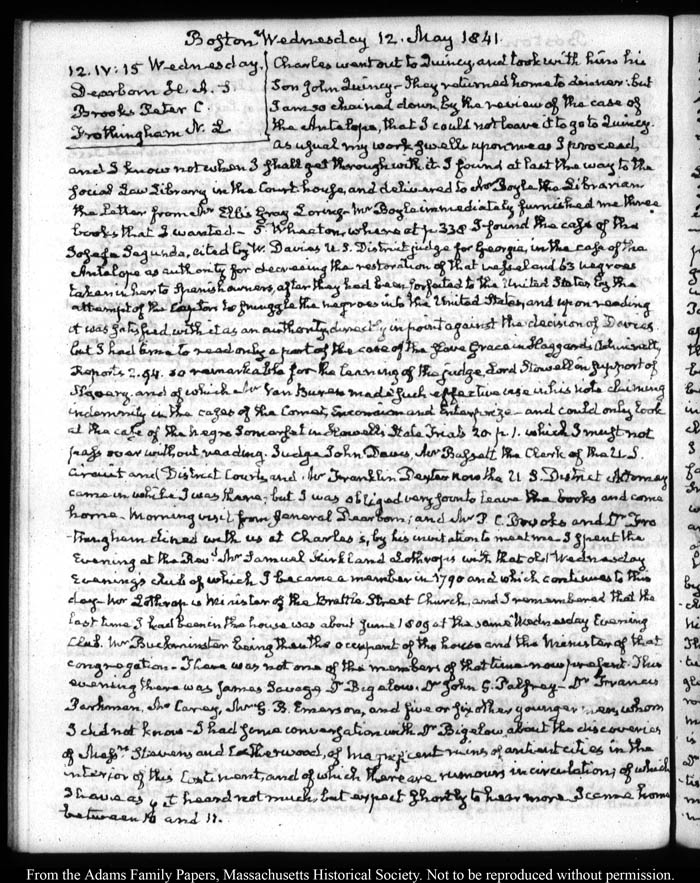 Boston Wednesday 12. May 1841.
12. IV: 15 Wednesday.
Dearborn H. A. S
Brooks Peter C.
Frothingham N. L
Charles went out to Quincy and took with him his
Son John Quincy - They returned home to dinner: but
I am so chained down by the review of the case of
the Antelope, that I could not leave it to go to Quincy.
As usual my work swells upon me as I proceed,
and I know not when I shall get through with it. I found at last the way to the
Social Law Library, in the Court house, and delivered to Mr Boyle the Librarian
the Letter from Mr Ellis Gray Loring - Mr Boyle immediately furnished me three
books that I wanted - 5 Wheaton, where at p 338 I found the case of the
Josefa Segunda, cited by W. Davies U. S. District judge for Georgia, in the case of the
Antelope as authority for decreeing the restoration of that vessel and 63 negroes
taken in her to Spanish owners, after they had been forfeited to the United States by the
attempt of the Captors to smuggle the negroes into the United States, and upon reading
it was satisfied with it as an authority directly in point against the decision of Davies
but I had time to read only a part of the case of the Slave Grace in Haggard's Admiralty
Reports 2. 94. so remarkable for the leaning of the judge, Lord Stowell in support of
Slavery, and of which Mr Van Buren made such effective use in his note claiming
indemnity in the cases of the Comet, Encomium and Enterprize - and could only look
at the case of the negro Somerset in Howell's State Trials 20. p 1. which I must not
pass over without reading. Judge John Davis, Mr Bassett the Clerk of the U. S.
Circuit and District Courts, and Mr Franklin Dexter now the U S. District Attorney
came in while I was there; but I was obliged very soon to leave the books and come
home. Morning visit from General Dearborn; and Mr P. C. Brooks and Dr Fro
-thingham dined with us at Charles's, by his invitation to meet me. I spent the
Evening at the Revd Mr Samuel Kirkland Lothrop's with that old Wednesday
Evenings club of which I became a member in 1790 and which continues to this
day - Mr Lothrop is Minister of the Brattle Street Church, and I remembered that the
last time I had been in the house was about June 1809 at the same Wednesday Evening
Club. Mr Buckminster being then the occupant of the house and the Minister of that
congregation - There was not one of the members of that time now present. This
evening there was James Savage Dr Bigelow. Dr John G. Palfrey - Dr Francis
Parkman, Mr Carey, Mr G. B. Emerson, and five or six other younger men, whom
I did not know - I had some conversation with Dr Bigelow about the discoveries
of Messrs Stevens and Catherwood, of magnificent ruins of antient cities in the
interior of this Continent, and of which there are rumours in circulation; of which
I have as yet heard not much, but expect shortly to hear more. I came home
between 10 and 11.
From the Adams Family Papers, Massachusetts Historical Society. Not to be reproduced without permission.